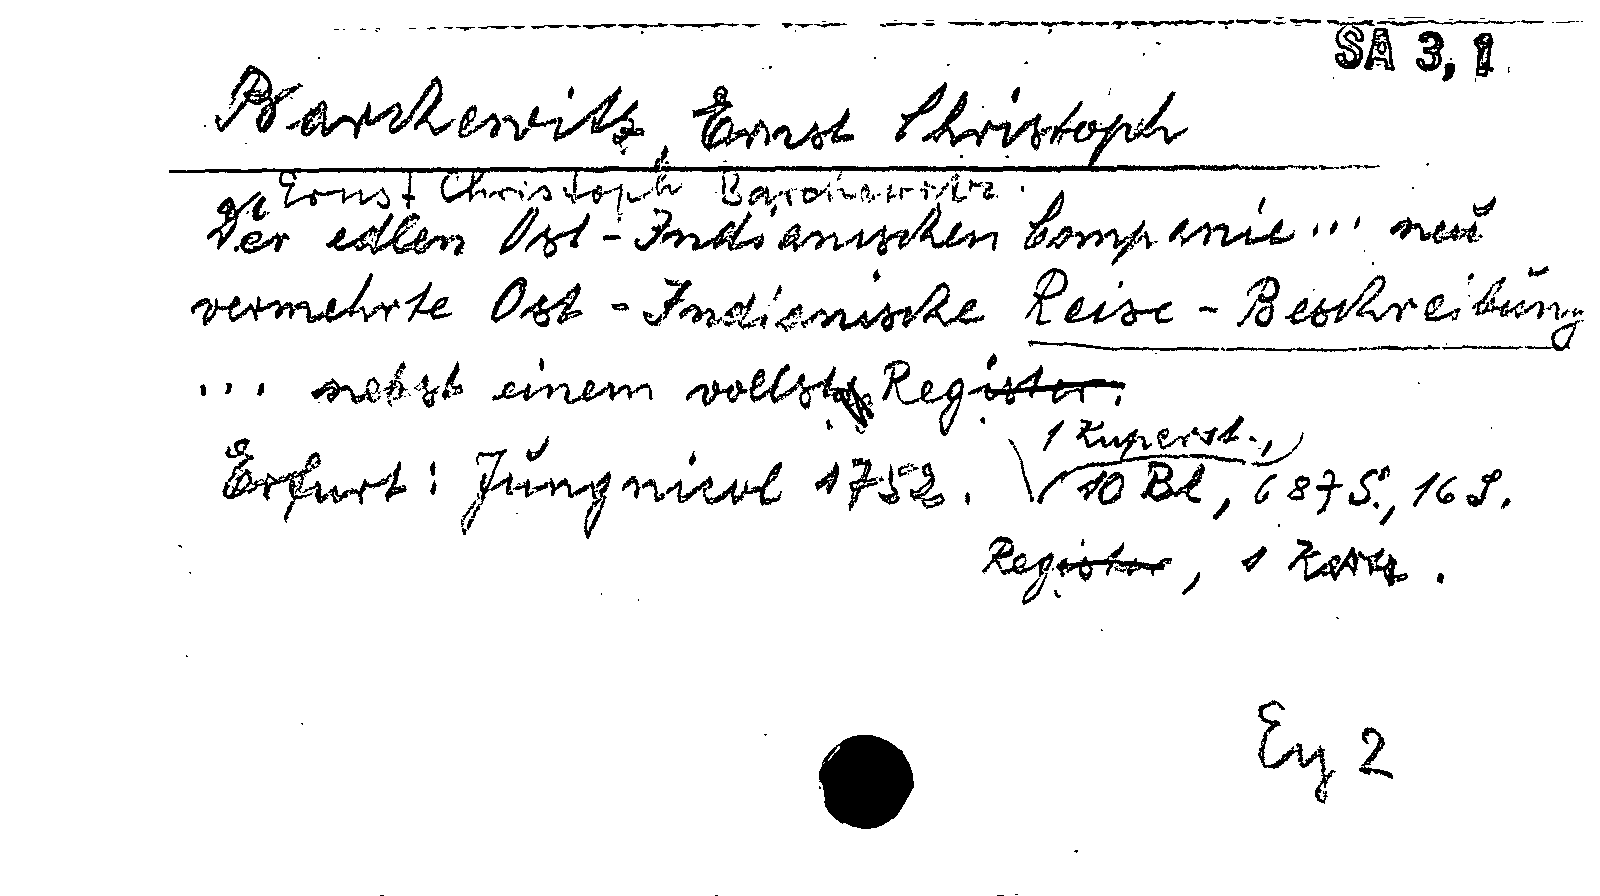 SA 3, 1
Barchewitz, Ernst Christoph
Ernst Christoph Barchewitz.
Der edlen Ost-Indianischen Companie... neu
vermehrte Ost-Indianische Reise-Beschreibung
... nebst einem vollst. Register.
1 Kuperst.,
Erfurt: Jungnicol 1752. 10 Bl, 687 S., 16 S.
Register, 1 Karte.
Ey 2